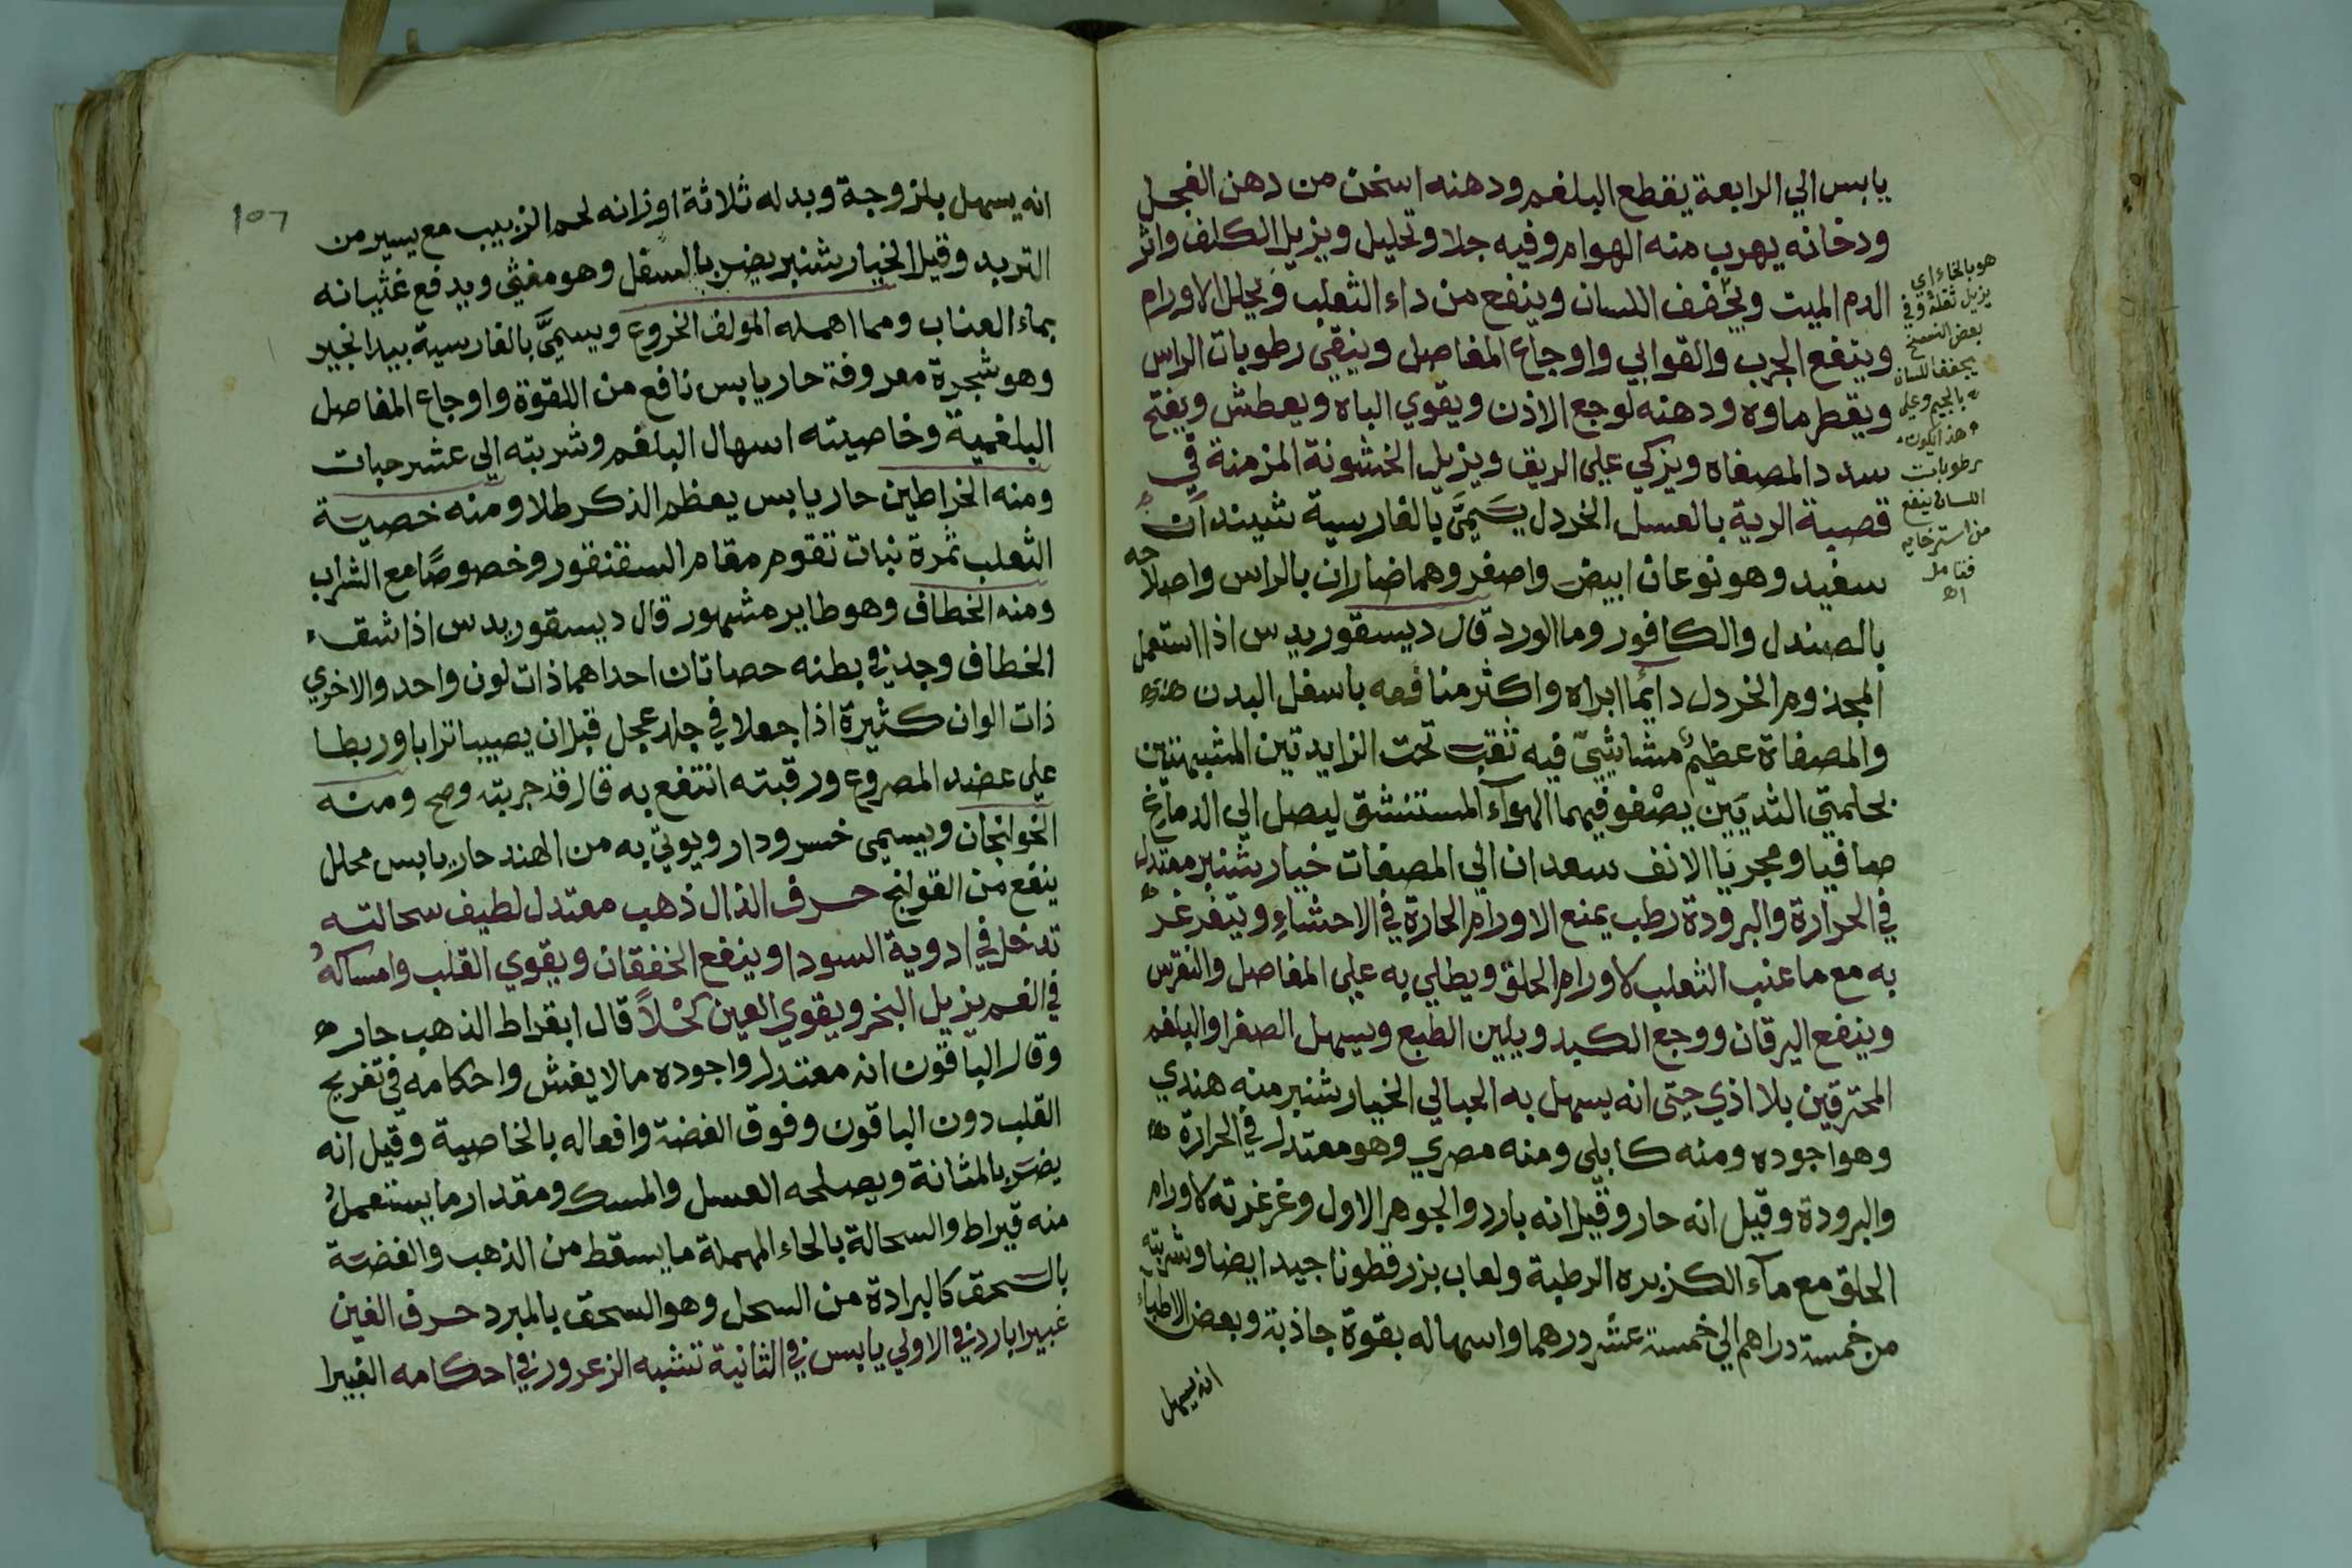 يابس الي الرابعة يقطع البلغم ودهنه اسخن من دهن الفجل
ودخانه يهرب منه الهوام وفيه جلا وتحليل ويزيل الكلف واثر
الدم الميت ويخفف اللسان وينفع من داء الثعلب ويحلل الاورام
وينفع الجرب والقوابي واوجاع المفاصل وينقي رطوبات الراس
ويقطر ماوه ودهنه لوجع الاذن ويقوي الباه ويعطش ويفتح
سدد المصفاه ويزكي علي الريق ويزيل الخشونة المزمنة في
قصبة الرية بالعسل الخردل يسمي بالفارسية شبندان
سفيد وهو نوعان ابيض واصفر وهما ضاران بالراس واصلاحه
بالصندل والكافور وما الورد قال ديسقوريدس اذا استعمل
المجذوم الخردل دايما ابراه واكثر منافعه باسفل البدن
والمصفاة عظيم مشاشي فيه ثقب تحت الزايدتين المشبهتين
بحلمتي الثديين يصفو فيهما الهواء المستنشق ليصل الي الدماغ
صافيا ومجريا الانف سعدان الي المصفات خيار شنبر معتدل
في الحرارة والبرودة رطب يمنع الاورام الحارة في الاحشاء ويتغرغر
به مع ما عنب الثعلب لاورام الحلق ويطلي به علي المفاصل والنقرس
وينفع اليرقان ووجع الكبد ويلين الطبع ويسهل الصفرا والبلغم
المحترقين بلا اذي حتى انه يسهل به الحبالي الخيار شنبر منه هندي
وهو اجوده ومنه كابلي ومنه مصري وهو معتدل في الحرارة
والبرودة وقيل انه حار وقيل انه بارد والجوهر الاول وغرغرته لاورام
الحلق مع ماء الكزبره الرطبة ولعاب بزر قطونا جيد ايضا وشربته
من خمسة دراهم الي خمسة عشر درهما واسهاله بقوة جاذبة وبعض الاطباء
انه يسهل
هو بالخاء اي
يزيل ثقله وفي
بعض النسخ
يجفف اللسان
بالجيم وعلي
هذا يكون
رطوبات
اللسان ينفع
من استرخايه
فتامل
اه
١٥٦
انه يسهل بلزوجة وبدله ثلاثة اوزانه لحم الزبيب مع يسير من
التربد وقيل الخيار شنبر يضر بالسفل وهو مغثي ويدفع غثيانه
بماء العناب ومما اهمله المولف الخروع ويسمي بالفارسية بيد انجير
وهو شجرة معروفة حار يابس نافع من اللقوة واوجاع المفاصل
البلغمية وخاصيته اسهال البلغم وشربته الي عشر حبات
ومنه الخراطين حار يابس يعظم الذكر طلا ومنه خصية
الثعلب ثمرة نبات تقوم مقام السقنقور وخصوصا مع الشراب
ومنه الخطاف وهو طاير مشهور قال ديسقوريدس اذا شق
الخطاف وجد في بطنه حصاتان احداهما ذات لون واحد والاخري
ذات الوان كثيرة اذا جعلا في جلد عجل قبل ان يصيبا ترابا وربطا
علي عضد المصروع ورقبته انتفع به قال قد جربته وصح ومنه
الخولنجان ويسمي خسرودار ويوتي به من الهند حار يابس محلل
ينفع من القولنج حرف الذال ذهب معتدل لطيف سحالته
تدخل في ادوية السودا وينفع الخفقان ويقوي القلب وامساكه
في الفم يزيل البخر ويقوي العين كحلا قال ابقراط الذهب حار
وقال الباقون انه معتدل واجوده ما لا يغش واحكامه في تفريح
القلب دون الياقوت وفوق الفضة وافعاله بالخاصية وقيل انه
يضر بالمثانة ويصلحه العسل والمسك ومقدار ما يستعمل
منه قيراط والسحالة بالحاء المهملة ما يسقط من الذهب والفضة
بالسحق كالبرادة من السحل وهو السحق بالمبرد حرف الغين
غبيرا بارد في الاولي يابس في الثانية تشبه الزعرور في احكامه الغبيرا